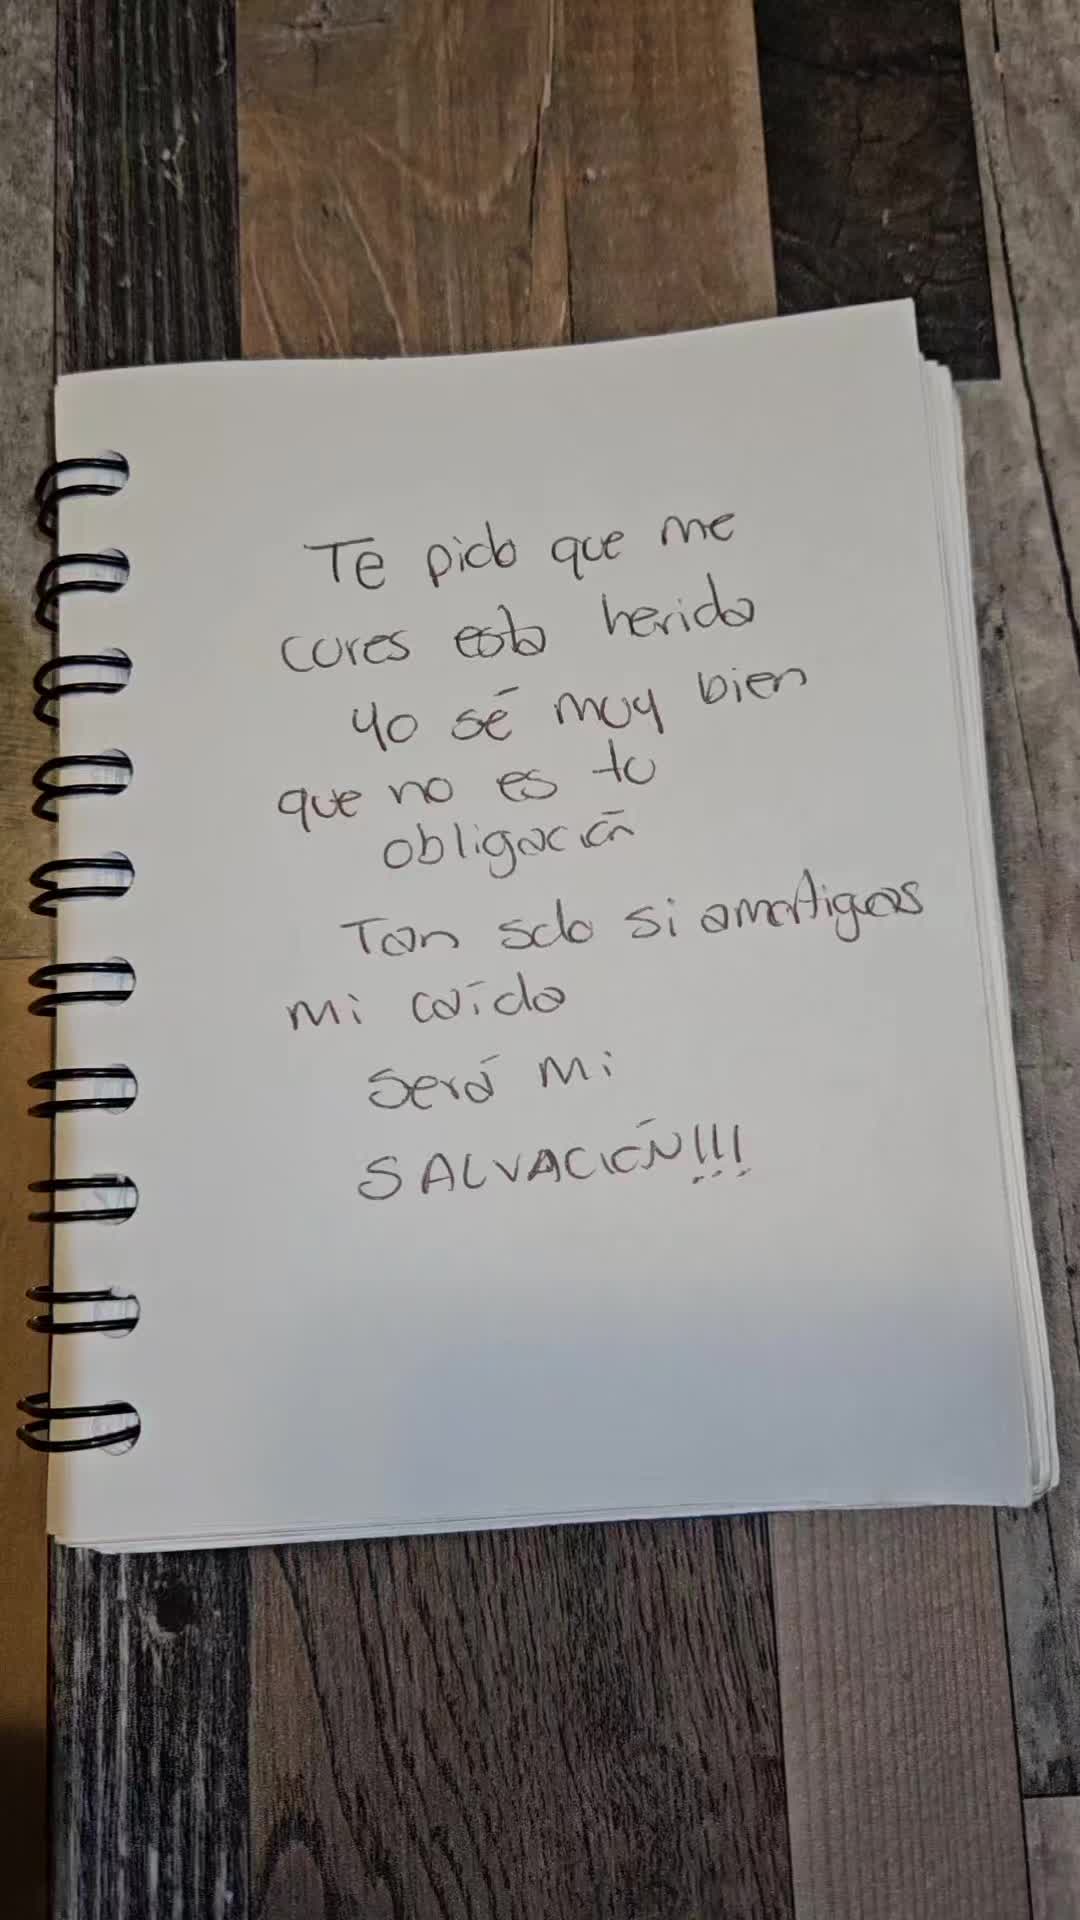 Te pido que me
cures esta herida
yo sé muy bien
que no es tu
obligación
Tan solo si amortiguas
mi caída
será mi
SALVACIÓN!!!